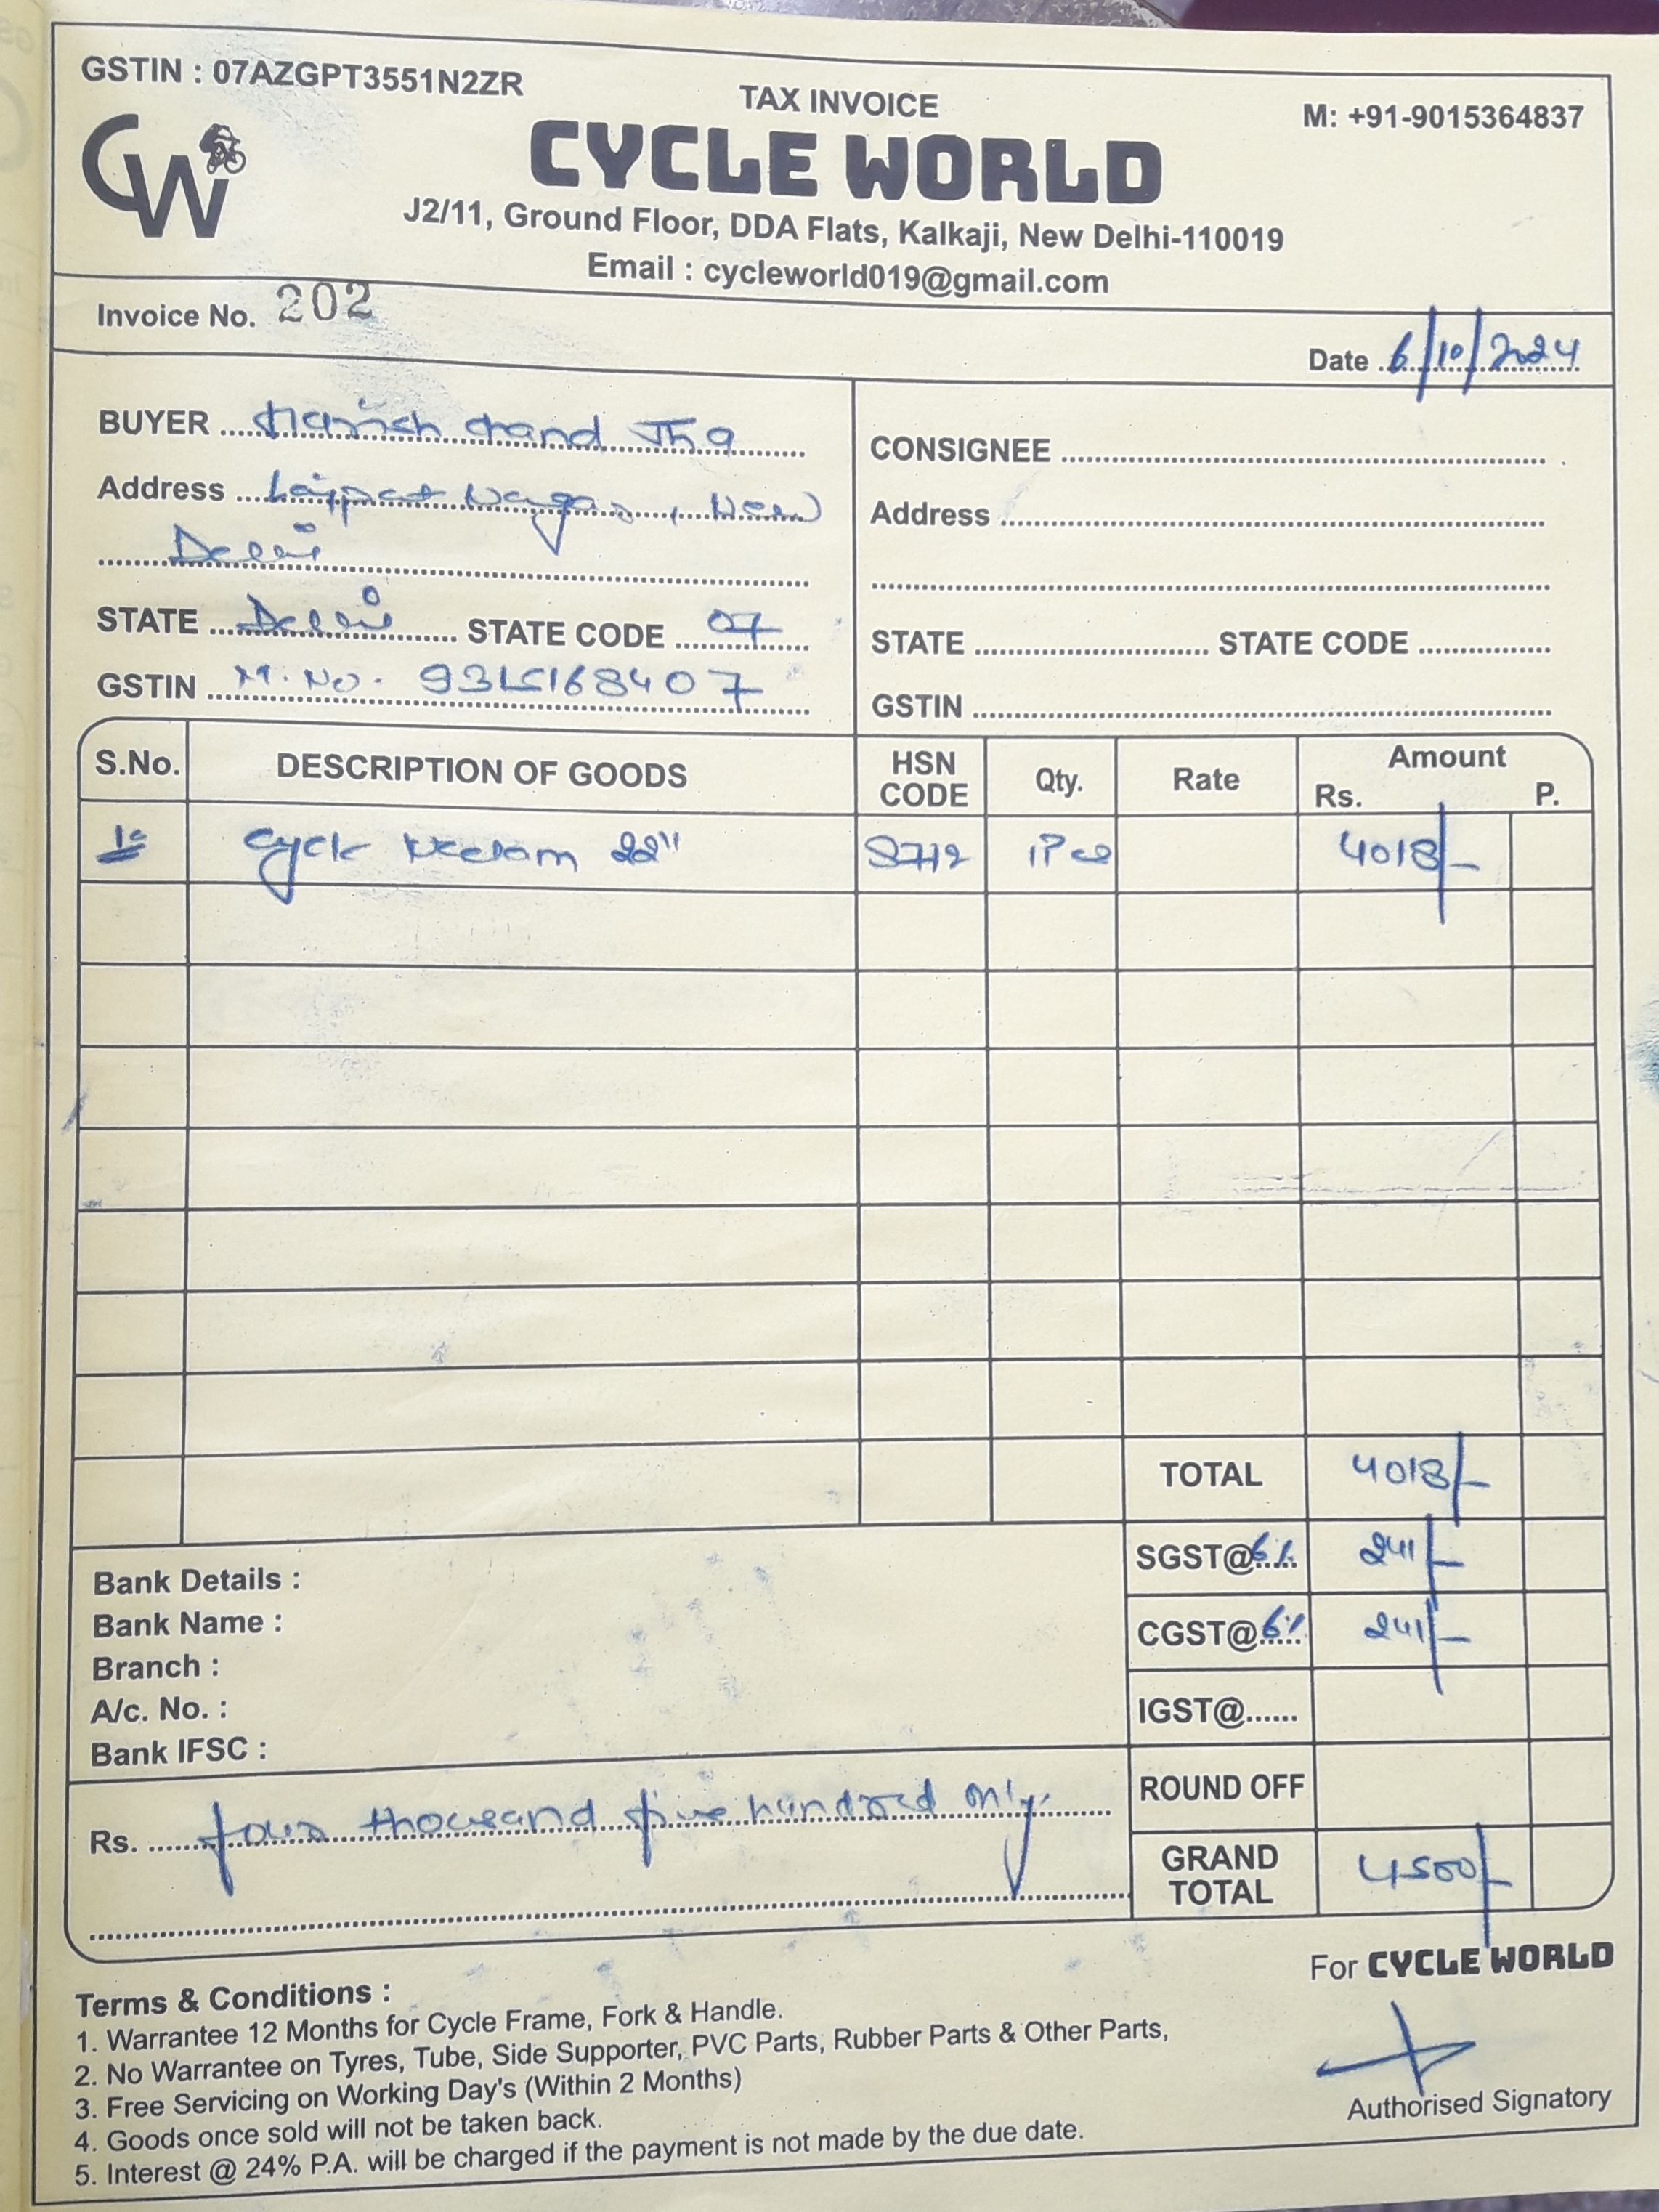 GSTIN : 07AZGPT3551N2ZR
TAX INVOICE
M: +91-9015364837
CW
CYCLE WORLD
J2/11, Ground Floor, DDA Flats, Kalkaji, New Delhi-110019
Email : cycleworld019@gmail.com
Invoice No. 202
Date 6/10/2024
BUYER Harish Chand Jha
Address Lajpat Nagar, New
Delhi
STATE Delhi STATE CODE 07
GSTIN M. No. 9315168407
CONSIGNEE
Address
STATE STATE CODE
GSTIN
S.No. DESCRIPTION OF GOODS HSN CODE Qty. Rate Amount Rs. P.
1. Cycle Neelam 22" 8712 1 Pce 4018/-
TOTAL 4018/-
SGST@6% 241/-
CGST@6% 241/-
IGST@......
ROUND OFF
GRAND TOTAL 4500/-
Bank Details :
Bank Name :
Branch :
A/c. No. :
Bank IFSC :
Rs. four thousand five hundred only.
For CYCLE WORLD
Authorised Signatory
Terms & Conditions :
1. Warrantee 12 Months for Cycle Frame, Fork & Handle.
2. No Warrantee on Tyres, Tube, Side Supporter, PVC Parts, Rubber Parts & Other Parts,
3. Free Servicing on Working Day's (Within 2 Months)
4. Goods once sold will not be taken back.
5. Interest @ 24% P.A. will be charged if the payment is not made by the due date.